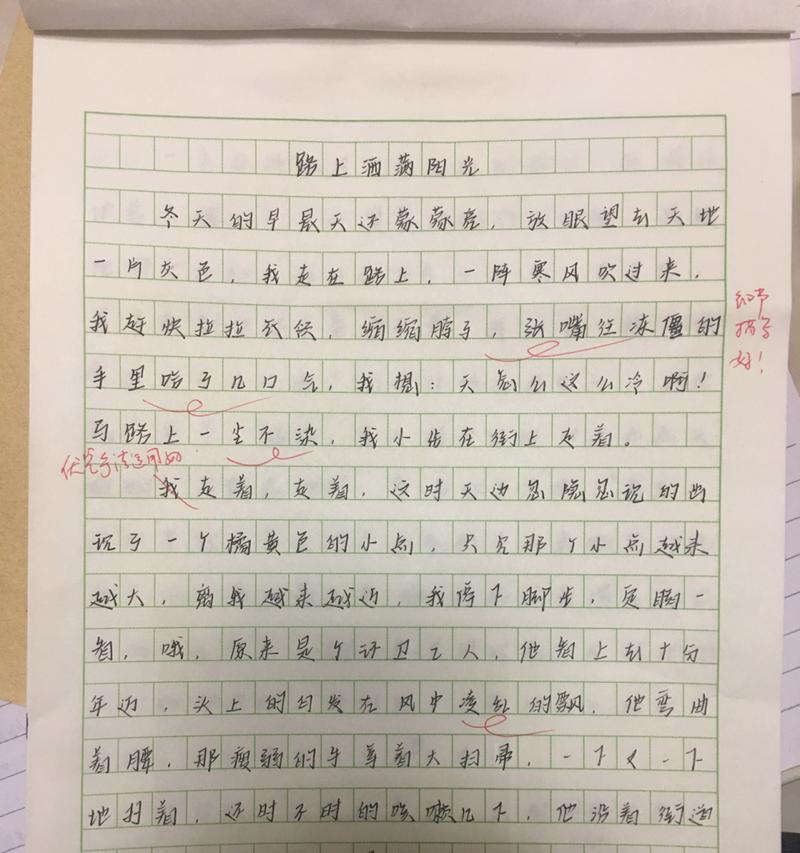 路上洒满阳光
冬天的早晨天还蒙蒙亮，放眼望去天地
一片灰色，我走在路上，一阵寒风吹过来，
我赶快拉拉衣领，缩缩脖子，张嘴往冻僵的
手里哈了几口气，我想：天怎么这么冷啊！
马路上一尘不染，我小步在街上走着。
我走着，走着，这时天边忽隐忽现的出
现了一个橘黄色的小点，只见那个小点越来
越大，离我越来越近，我停下脚步，定睛一
看，哦，原来是个环卫工人，他看上去十分
年迈，头上的白发在风中凌乱的飘，他弯曲
着腰，那瘦弱的手拿着大扫帚，一下又一下
地扫着，还时不时的咳嗽几下，他沿着街道
细节
描写
好！
伏笔手法运用好